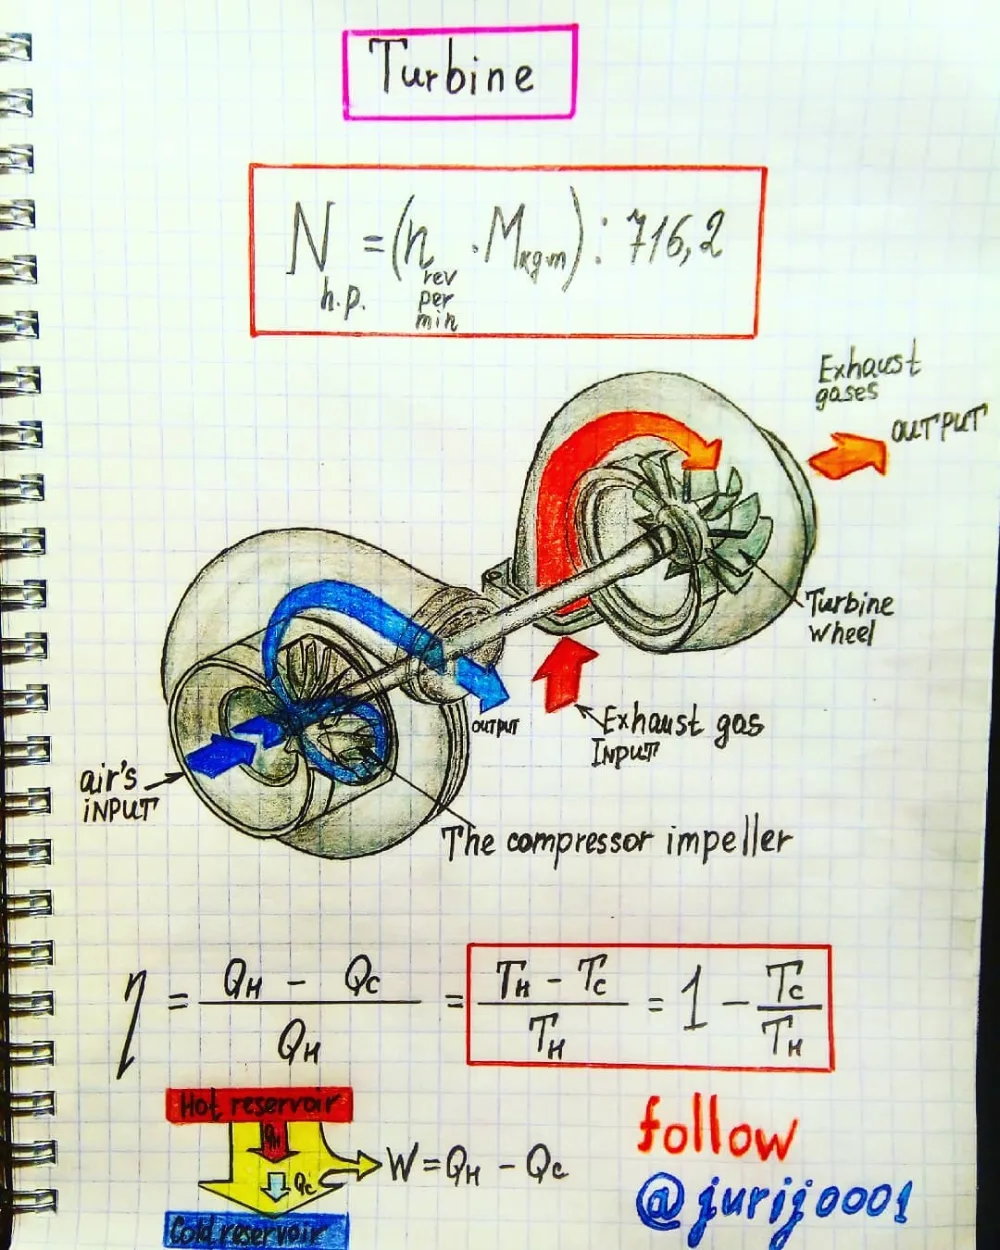 Turbine
N h.p. = (n rev per min · M kgm) : 716,2
Exhaust
gases
OUTPUT
Turbine
wheel
OUTPUT
Exhaust gas
INPUT
air's
INPUT
The compressor impeller
η = (QH - QC) / QH = (TH - TC) / TH = 1 - TC / TH
Hot reservoir
QH
QC
W = QH - QC
Cold reservoir
follow
@jurij0001